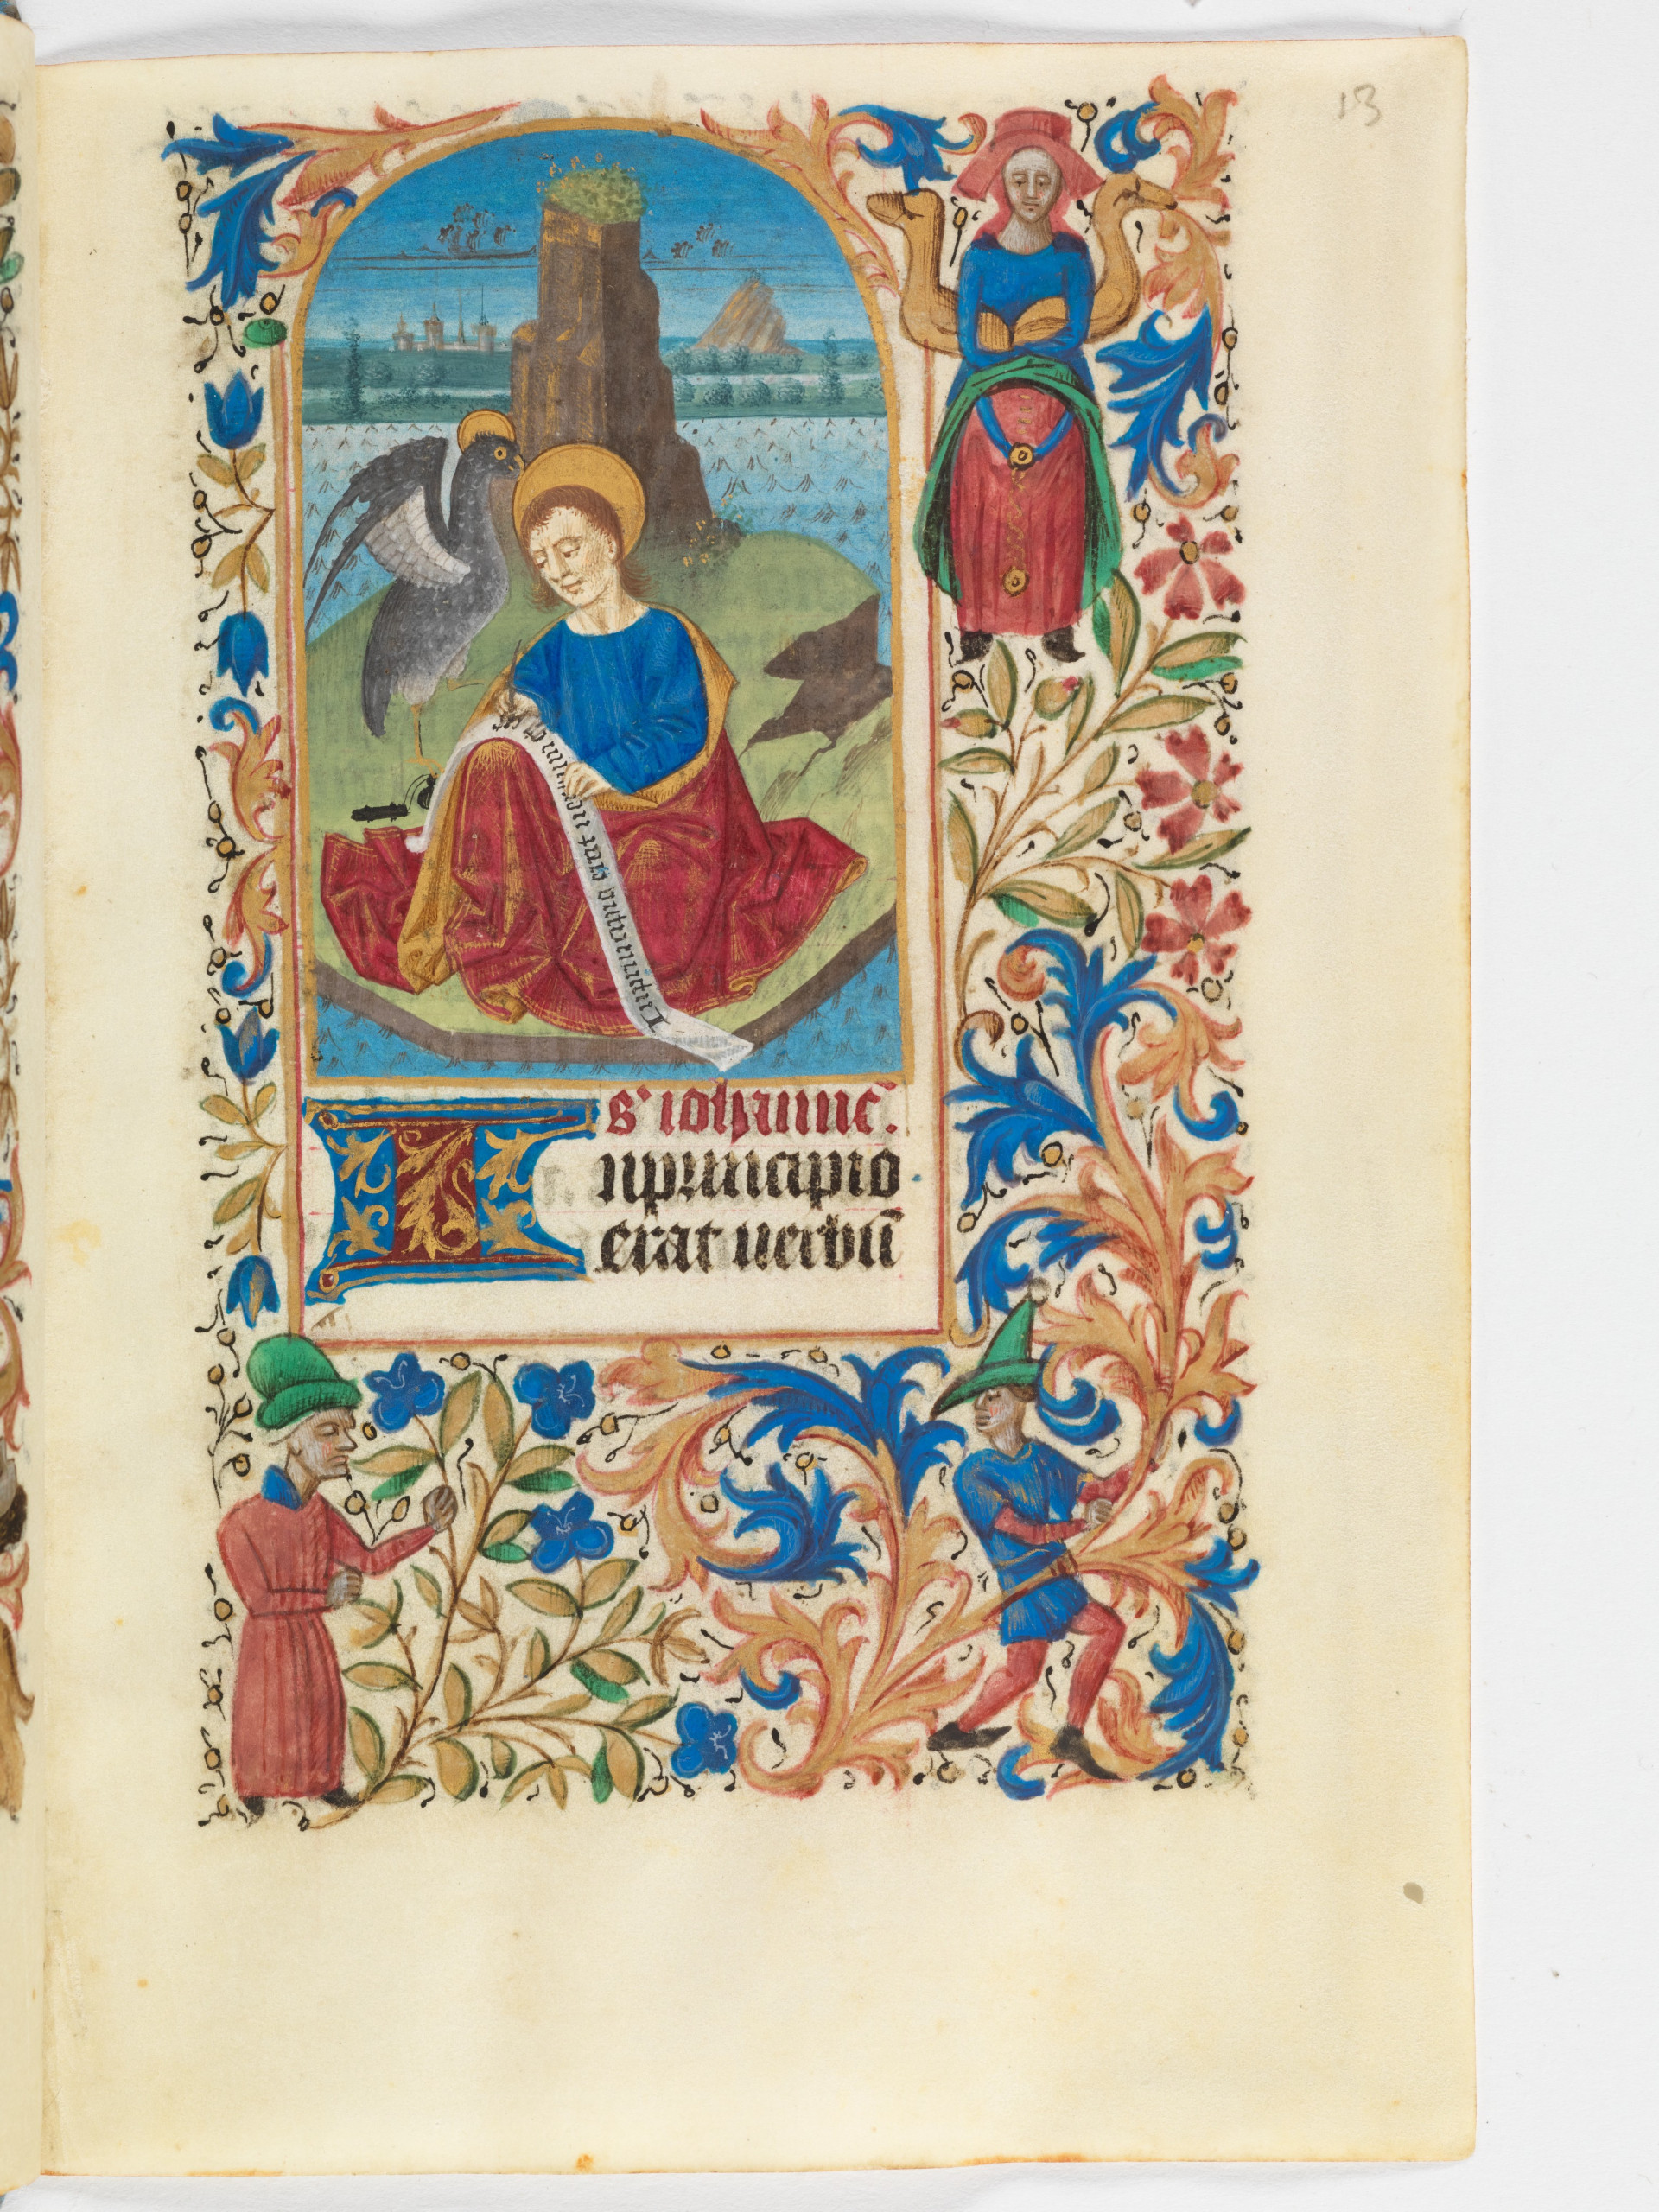 13
Inprincipio erat uerbum
s' iohanne̅.
Inprincipio
erat uerbū